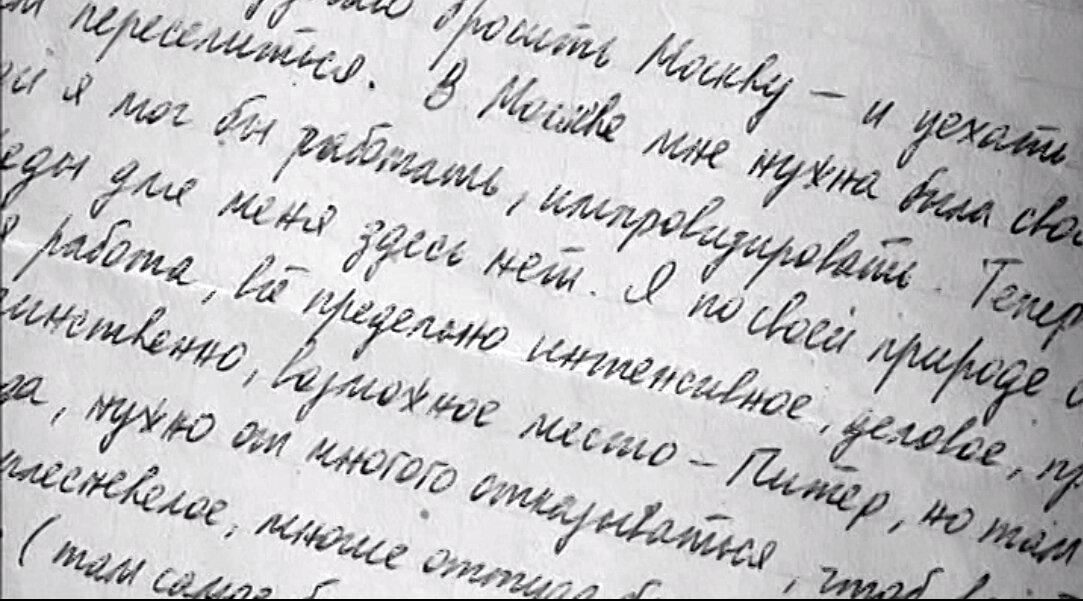 бросить Москву – и уехать
переселиться. В Москве мне нужна была сво
й я мог бы работать, импровизировать. Тепер
еды для меня здесь нет. Я по своей природе
я работа, всё предельно интенсивное, деловое, пр
инственно, возможное место – Питер, но там
да, нужно от многого отказываться, чтоб
плесневелое, многие оттуда б
( там самое б